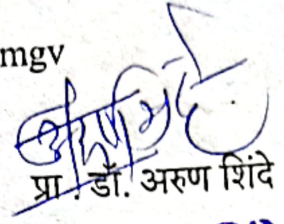 mgv
प्रा. डॉ. अरुण शिंदे